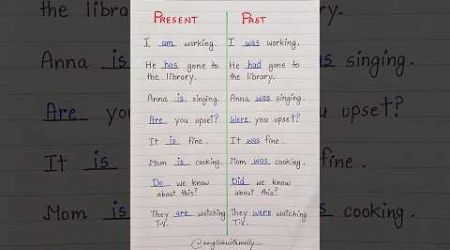 the librar
Anna is
Are you
It is
Mom is
PRESENT PAST
I am working. I was working.
He has gone to He had gone to
the library. the library.
Anna is singing. Anna was singing.
Are you upset? Were you upset?
It is fine. It was fine.
Mom is cooking. Mom was cooking.
Do we know Did we know
about this? about this?
They are watching They were watching
T.V. T.V.
@englishwithmilly_
ry.
singing.
upset?
fine.
cooking.